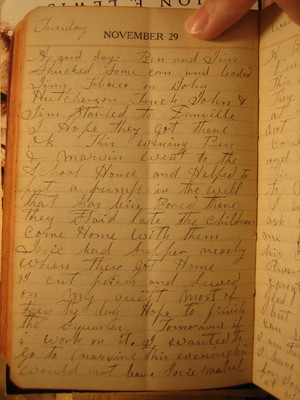 Tuesday
NOVEMBER 29
A good day. Ben and Jim
Shucked Some corn and loaded
Some Tobacco on Dolin
Hutcherson Truck John &
Jim Started to Danville
I Hope they got there
Ok This evening Ben
& Marvin went to the
School House and Helped to
put a pump in the well
that has bin Bored there
they Staid late the children
Come Home with them
Josie had Supper ready
when they got Home
I cut pieces and Sewed
on my quilt most of
the day Hope to finish
the Squares tomorrow if
I work on it. I wanted to
go to this evening but
would not leave Josie